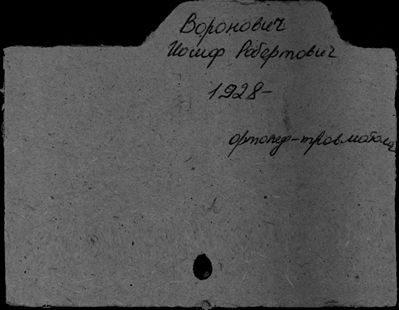 Воронович
Иосиф Робертович
1928-
ортопед-травматолог